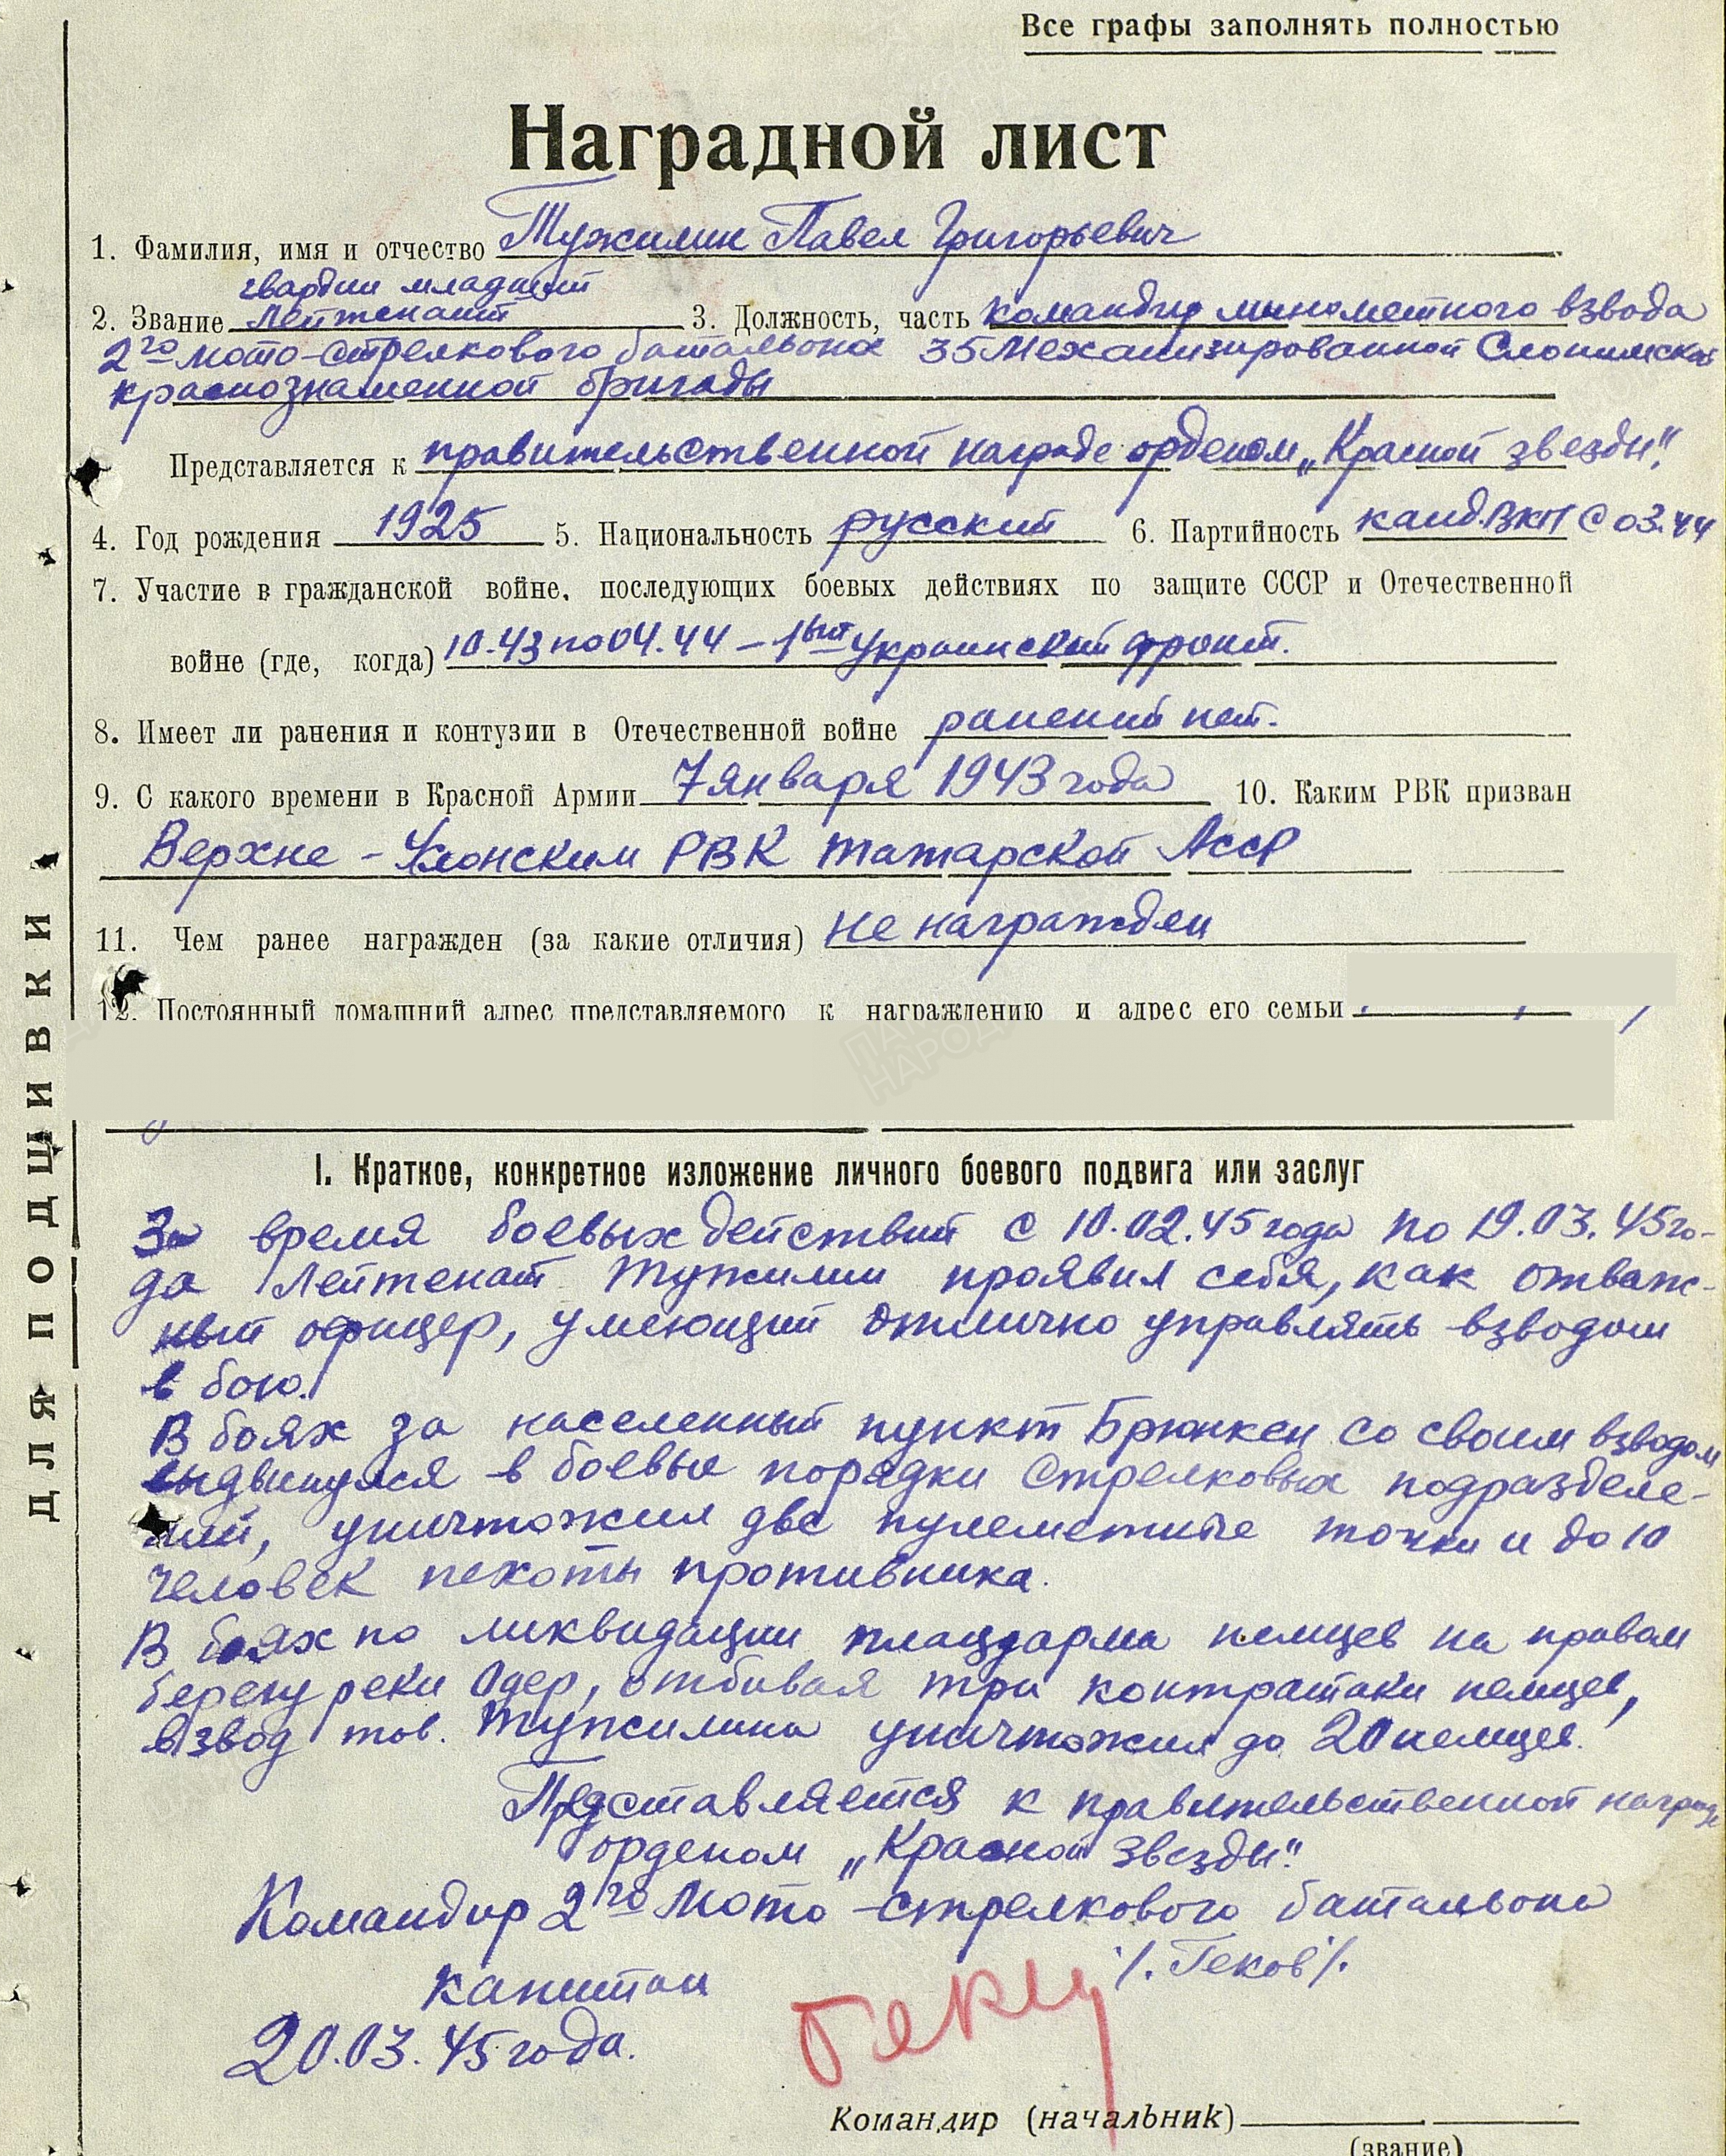 Все графы заполнять полностью
Наградной лист
1. Фамилия, имя и отчество Тужилин Павел Григорьевич
гвардии младший
2. Звание лейтенант 3. Должность, часть командир минометного взвода
2го мото-стрелкового батальона 35 Механизированной Слонимской
краснознаменной бригады
Представляется к правительственной награде орденом „Красной звезды".
4. Год рождения 1925 5. Национальность русский 6. Партийность канд. ВКП с 03.44
7. Участие в гражданской войне, последующих боевых действиях по защите СССР и Отечественной
войне (где, когда) 10.43 по 04.44 – 1ый Украинский фронт.
8. Имеет ли ранения и контузии в Отечественной войне ранений нет.
9. С какого времени в Красной Армии 7 января 1943 года 10. Каким РВК призван
Верхне-Услонским РВК Татарской АССР
11. Чем ранее награжден (за какие отличия) не награжден
12. Постоянный домашний адрес представляемого к награждению и адрес его семьи
ДЛЯ ПОДШИВКИ
I. Краткое, конкретное изложение личного боевого подвига или заслуг
За время боевых действий с 10.02.45 года по 19.03.45 го-
да Лейтенат Тужилин проявил себя, как отваж-
ный офицер, умеющий отлично управлять взводом
в бою.
В боях за населенный пункт Брюнкен со своим взводом
выдвинулся в боевые порядки стрелковых подразделе-
ний, уничтожил две пулеметные точки и до 10
человек пехоты противника.
В боях по ликвидации плацдарма немцев на правом
берегу реки Одер, отбивая три контратаки немцев,
взвод тов. Тужилина уничтожил до 20 немцев.
Представляется к правительственной награде
орденом „Красной звезды".
Командир 2го Мото-стрелкового батальона
капитан /. Геков /.
20.03.45 года.
Командир (начальник)
(звание)